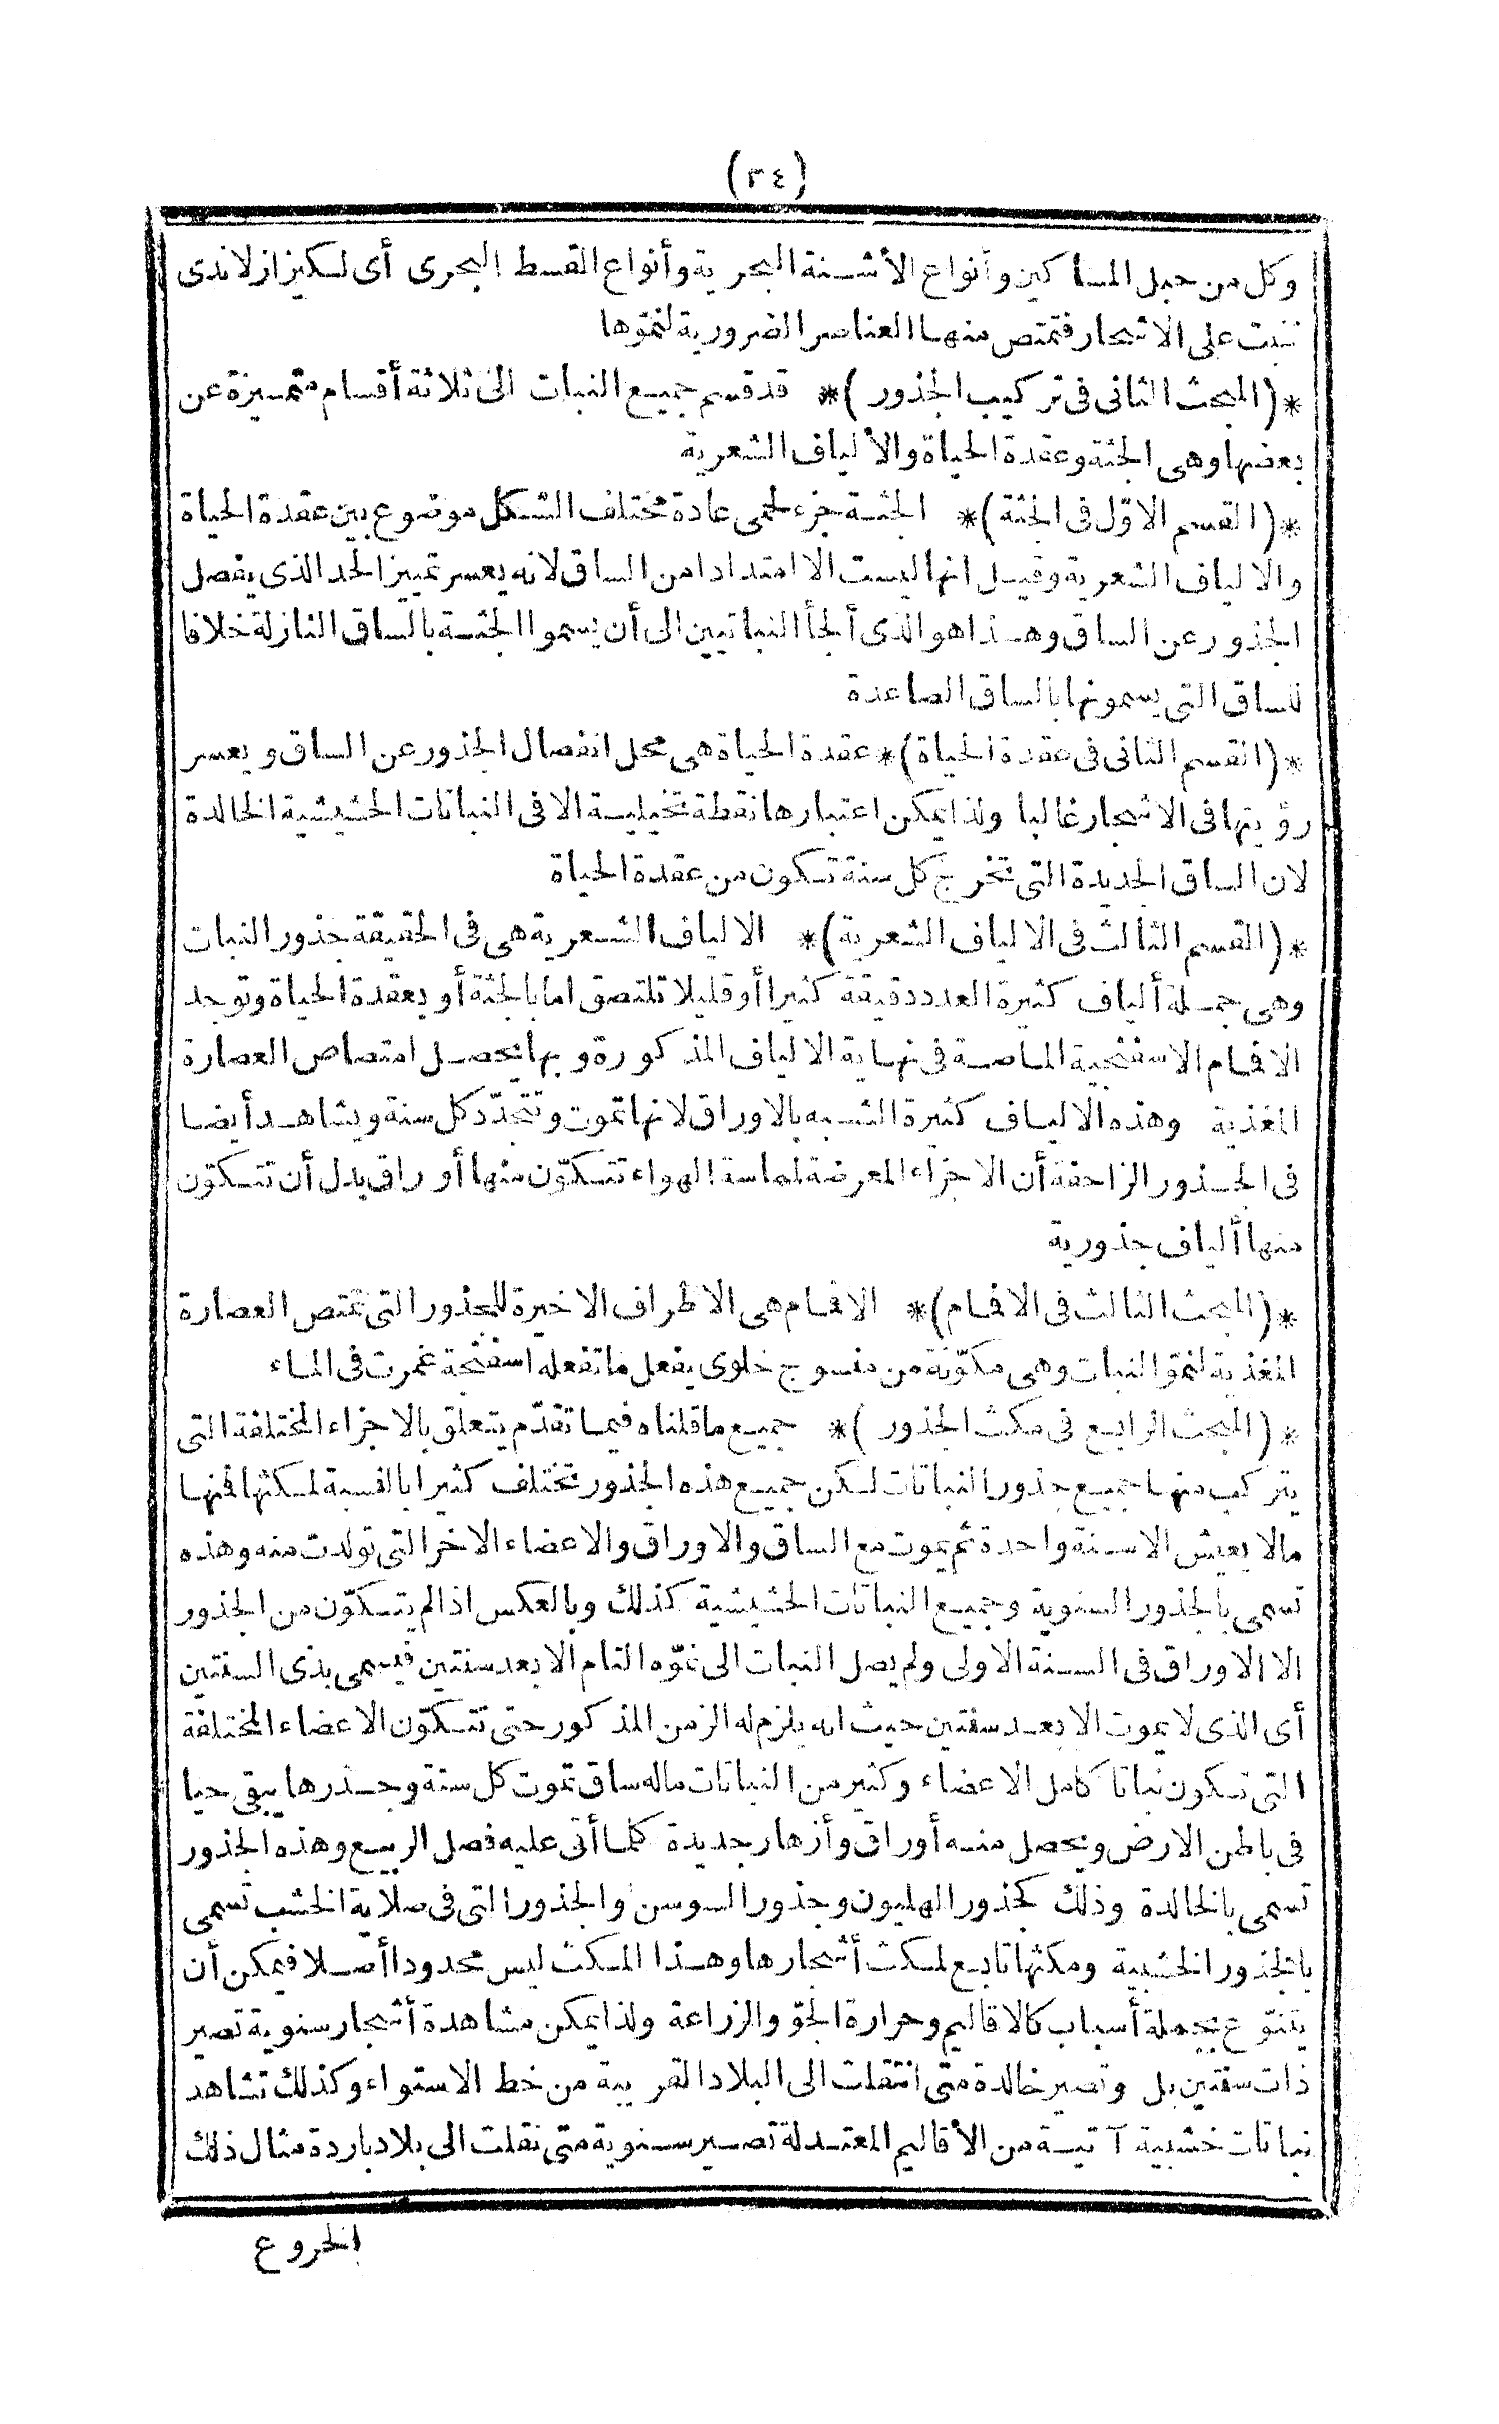 (٣٤)
وكل من حبل المساكين وأنواع الأشنة البحرية وأنواع القسط البحرى أى لسكيز ازلاندى
تنبت على الاشجار فتمتص منها العناصر الضرورية لنموّها
*(المبحث الثانى فى تركيب الجذور)* قد قسم جميع النبات الى ثلاثة أقسام متميزة عن
بعضها وهى الجثة وعقدة الحياة والألياف الشعرية
*(القسم الاوّل فى الجثة)* الجثة جزء لحمى عادة مختلف الشكل موضوع بين عقدة الحياة
والالياف الشعرية وقيل انها ليست الا امتدادا من الساق لانه يعسر تمييز الحد الذى يفصل
الجذور عن الساق وهذا هو الذى ألجأ النباتيين الى أن يسموا الجثة بالساق النازلة خلافا
للساق التى يسمونها بالساق الصاعدة
*(القسم الثانى فى عقدة الحياة)* عقدة الحياة هى محل انفصال الجذور عن الساق ويعسر
رؤيتها فى الاشجار غالبا ولذا يمكن اعتبارها نقطة تخيلية الا فى النباتات الحشيشية الخالدة
لان الساق الجديدة التى تخرج كل سنة تتكون من عقدة الحياة
*(القسم الثالث فى الالياف الشعرية)* الالياف الشعرية هى فى الحقيقة جذور النبات
وهى جملة ألياف كثيرة العدد دقيقة كثيرا أو قليلا تلتصق اما بالجثة أو بعقدة الحياة وتوجد
الافمام الاسفنجية الماصة فى نهاية الالياف المذكورة وبها يحصل امتصاص العصارة
المغذية وهذه الالياف كثيرة الشبه بالاوراق لانها تموت وتتجدّد كل سنة ويشاهد أيضا
فى الجذور الزاحفة أن الاجزاء المعرضة لمماسة الهواء تتكوّن منها أوراق بدل أن تتكوّن
منها ألياف جذورية
*(المبحث الثالث فى الافمام)* الافمام هى الاطراف الاخيرة للجذور التى تمتص العصارة
المغذية لنموّ النبات وهى مكوّنة من منسوج خلوى يفعل ما تفعله اسفنجة غمرت فى الماء
*(المبحث الرابع فى مكث الجذور)* جميع ما قلناه فيما تقدّم يتعلق بالاجزاء المختلفة التى
يتركب منها جميع جذور النباتات لكن جميع هذه الجذور تختلف كثيرا بالنسبة لمكثها فمنها
مالا يعيش الا سنة واحدة ثم يموت مع الساق والاوراق والاعضاء الاخر التى تولدت منه وهذه
تسمى بالجذور السنوية وجميع النباتات الحشيشية كذلك وبالعكس اذا لم يتكوّن من الجذور
الا الاوراق فى السنة الاولى ولم يصل النبات الى نموّه التام الا بعد سنتين فيسمى بذى السنتين
أى الذى لا يموت الا بعد سنتين حيث انه يلزم له الزمن المذكور حتى تتكوّن الاعضاء المختلفة
التى تكون نباتا كامل الاعضاء وكثير من النباتات ماله ساق تموت كل سنة وجذرها يبقى حيا
فى باطن الارض ويحصل منه أوراق وأزهار جديدة كلما أتى عليه فصل الربيع وهذه الجذور
تسمى بالخالدة وذلك كجذور الهليون وجذور السوسن والجذور التى فى صلابة الخشب تسمى
بالجذور الخشبية ومكثها تابع لمكث أشجارها وهذا المكث ليس محدودا أصلا فيمكن أن
يتنوّع بجملة أسباب كالاقاليم وحرارة الجوّ والزراعة ولذا يمكن مشاهدة أشجار سنوية تصير
ذات سنتين بل وتصير خالدة متى انتقلت الى البلاد القريبة من خط الاستواء وكذلك تشاهد
نباتات خشبية آتية من الأقاليم المعتدلة تصير سنوية متى نقلت الى بلاد باردة مثال ذلك
الخروع